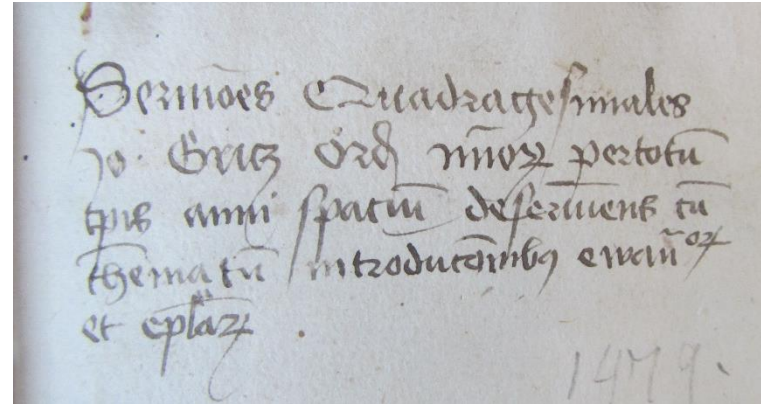 Sermōes Quadragesimales
Jo. Gritz Ord mīoꝝ per totū
tpis anni spaciū deserviens cū
thematū introductōnibꝫ ewāꝝ
et eplaꝝ.
1479.